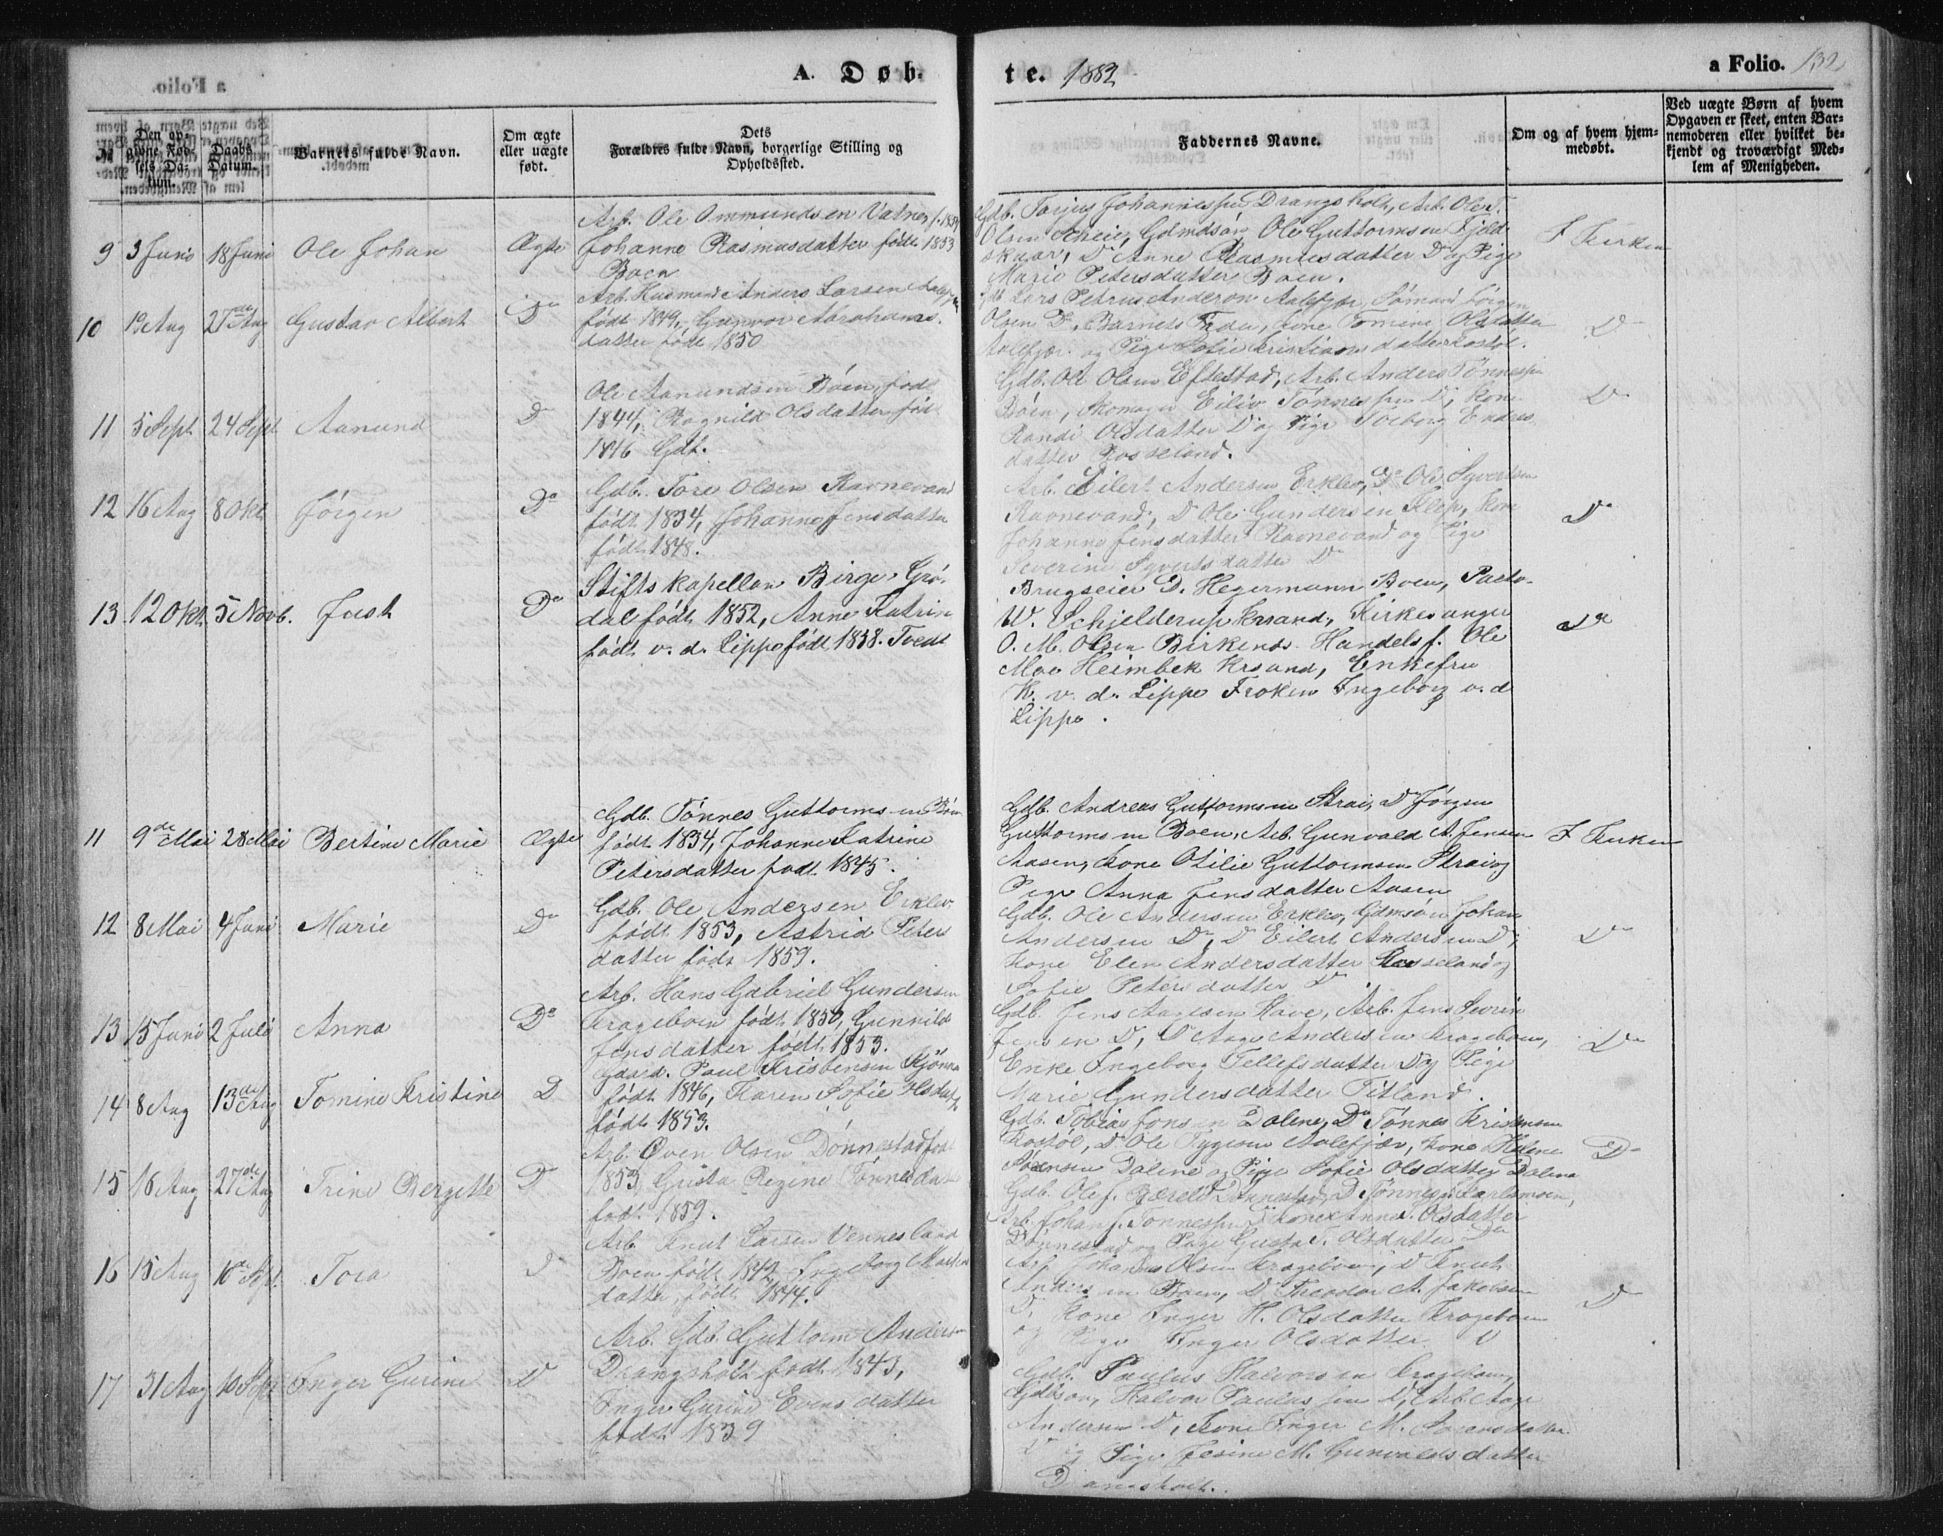 A. Døb-
te. 1882
a Folio. 132
No
Den opgivne Fødsels Datum.
Daabs Datum.
Barnets fulde Navn.
Om ægte eller uægte født.
Dets Forældres fulde Navn, borgerlige Stilling og Opholdssted.
Faddernes Navne.
Om og af hvem hjemmedøbt.
Ved uægte Børn af hvem Opgaven er skeet, enten Barnemoderen eller hvilket bekjendt og troværdigt Medlem af Menigheden.
9 3 Juni 18 Juni Ole Johan Ægte
Arb. Ole Ommundsen Vatne f. 1854
Johanne Rasmusdatter født 1853
Boen
Gdb. Torjus Johannessen Drangsholt, Arb. Ole
Olsen Scheie, Gdmdsøn Ole Guttormsen Fjeld
skaar, Do Anne Rasmusdatter Do og Pige
Marie Petersdatter Boen.
I Kirken
10 19 Aug 27de Aug Gustav Albert Do
Arb. Husmand Anders Larsen Aalefjær
født 1849, Gunvor Abrahams
datter født 1850
Gdb. Lars Petrus Anderson Aalefjær, Sømand Jørgen
Olsen Do, Barnets Fader, Kone Tomine Olsdatter
Aalefjær og Pige Sofie Kristiansdatter Kostøl.
Do
11 5 Sept 24 Sept Aanund Do
Ole Aanundsen Boen, født
1844, Ragnild Olsdatter født
1846 Gdb.
Gdb. Ole Olsen Eftestad, Arb. Anders Tønnessen
Boen, Skomager Eiliv Tønnessen Do, Kone
Randi Olsdatter Do og Pige Torborg Endres
datter Rosseland.
Do
12 16 Aug 8 Okt Jørgen Do
Gdb. Tore Olsen Ravnevand
født 1834, Johanne Jensdatter
født 1848.
Arb. Eilert Andersen Erklev, Do Ole Syvertsen
Ravnevand, Do Ole Gundersen Klep, Kone
Johanne Jensdatter Ravnevand og Pige
Severine Syvertsdatter Do
Do
13 12 Okt. 5 Novb. Just Do
Stiftskapellan Birger Grø
dal født 1852, Anne Katrine
født v. d. Lippe født 1858. Tveit
Brugseier D. Hegermann Boen, Pastor
W. Schjelderup Krsand, Kirkesanger
O. M. Olsen Birkenes Handelsf. Ole
Moe Heimbek Krsand, Enkefru
K. v. d. Lippe Frøken Ingeborg v. d
Lippe.
Do
11 9de Mai 28 Mai Bertine Marie Ægte
Gdb. Tønnes Guttormsen Boen
født 1834, Johanne Katrine
Petersdatter født 1845.
Gdb. Andreas Guttormsen Strai, Do Jørgen
Guttormsen Boen, Arb. Gunvald A. Jensen
Aasen, Kone Otilie Guttormsen Strai og
Pige Anna Jensdatter Aasen
I Kirken
12 8 Mai 4 Juni Marie Do
Gdb. Ole Andersen Erklev
født 1853, Astrid Peters
datter født 1859.
Gdb. Ole Andersen Erklev, Gdmsøn Johan
Andersen Do, Do Eilert Andersen Do,
Kone Elen Andersdatter Rosseland og
Sofie Petersdatter Do
Do
13 15 Juni 2 Juli Anna Do
Arb. Hans Gabriel Gundersen
Krageboen født 1850, Gunnild
Jensdatter født 1853.
Gdb. Jens Aagesen Have, Arb. Jens Severin
Jensen Do, Do Aage Andersen Krageboen,
Enke Ingeborg Tellefsdatter Do og Pige
Marie Gundersdatter Titland.
Do
14 8 Aug 13de Aug Tomine Kristine D
Gdbd. Paul Kristensen Kjønne
født 1846, Karen Sofie Olsdatter
født 1853.
Gdb. Tobias Jonsen Dalene, Do Tønnes Kristensen
Kostøl, Do Ole Tygesen Aalefjær, Kone Helene
Sørensen Dalene og Pige Sofie Olsdatter Dalene
Do
15 16 Aug 27de Aug Trine Bergitte D
Arb. Even Olsen Dønnestad født
1853, Gusta Regine Tønnesdatter
født 1859.
Gdb. Ole J. Dønnestad, Do Tønnes
Arb. Johan J. Tønnessen Do Kone Anne T. Olsdatter
Dønnestad og Pige Gusta T. Olsdatter Do
16 15 Aug 10de Sept. Tora D
Arb. Knut Larsen Vennesland
Boen født 1842, Ingeborg Mortens
datter født 1844.
Arb. Johannes Olsen Krageboen, Do Knut
Andersen Boen, Do Theodor A. Jakobsen
Do, Kone Inger H. Olsdatter Krageboen
og Pige Inger Olsdatter Do
Do
17 31 Aug 10 Sept Inger Gurine D
Arb. Gdb. Guttorm Andersen
Drangsholt født 1843,
Inger Gurine Evensdatter
født 1839
Gdb. Paulus Halvorsen Krageboen,
Gdbsøn Halvor Paulussen Do, Arb. Aage
Andersen Do, Kone Inger M. Sorensdatter
Do og Pige Tesine M. Gunvaldsdatter
Drangsholt.